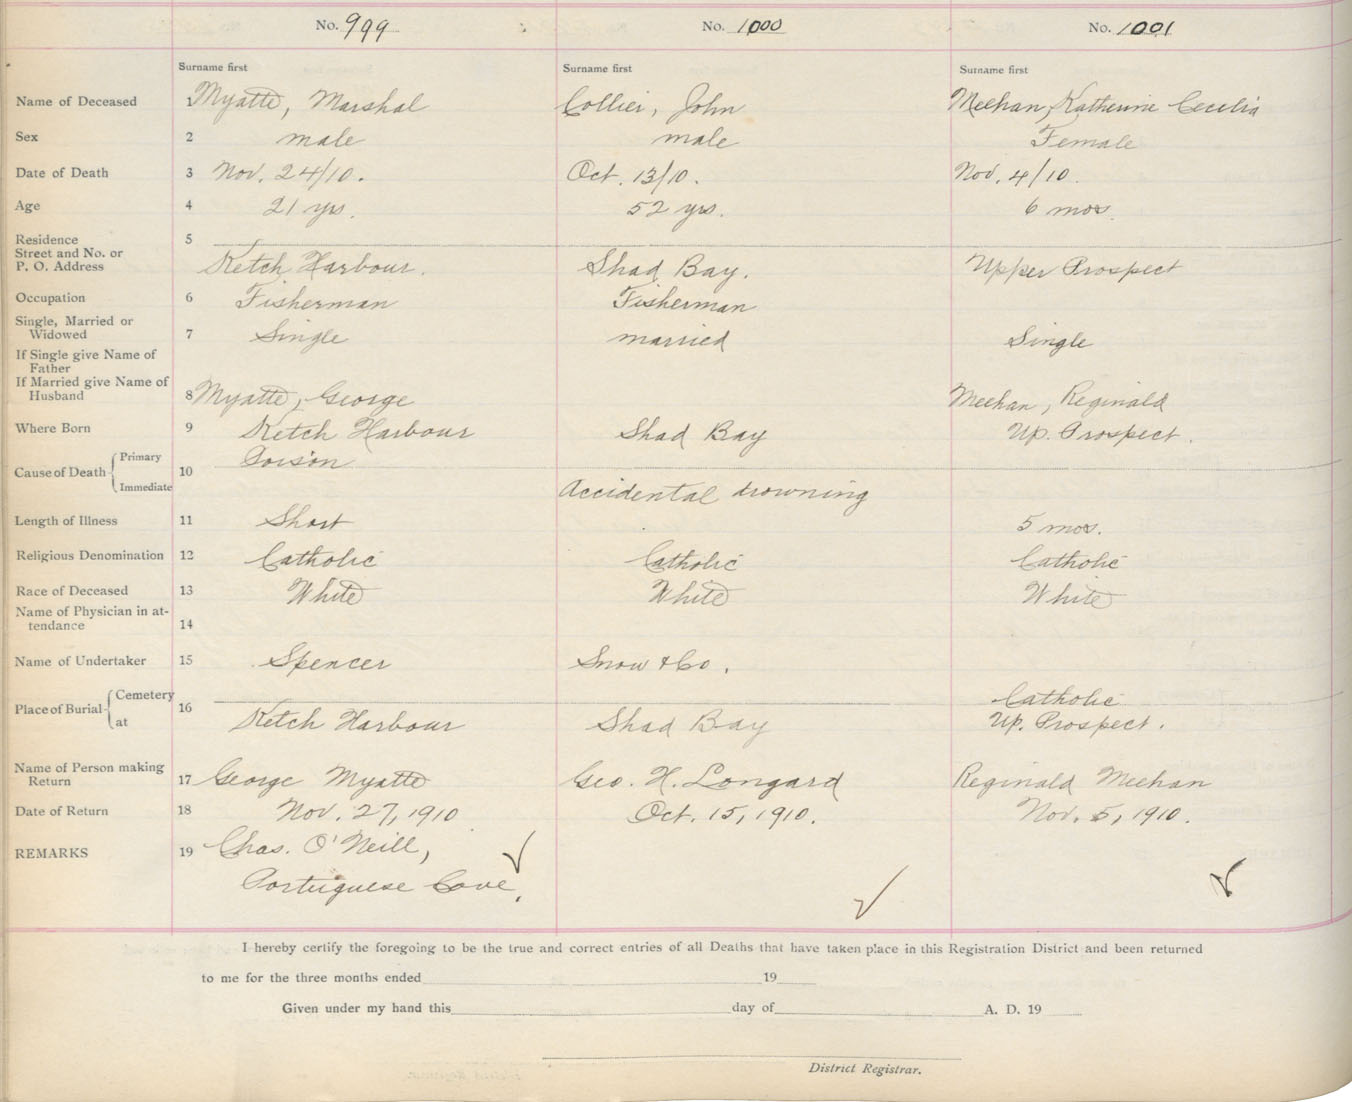 No. 999 No. 1000 No. 1001
Surname first Surname first Surname first
Name of Deceased 1 Myatte, Marshal Collier, John Meehan, Katherine Cecelia
Sex 2 male male Female
Date of Death 3 Nov. 24/10. Oct. 13/10. Nov. 4/10.
Age 4 21 yrs. 52 yrs. 6 mos.
Residence 5
Street and No. or
P. O. Address Ketch Harbour. Shad Bay. Upper Prospect
Occupation 6 Fisherman Fisherman
Single, Married or
Widowed 7 Single married Single
If Single give Name of
Father
If Married give Name of
Husband 8 Myatte, George Meehan, Reginald
Where Born 9 Ketch Harbour Shad Bay Up. Prospect.
Cause of Death Primary 10 Poison
Immediate Accidental drowning
Length of Illness 11 Short 5 mos.
Religious Denomination 12 Catholic Catholic Catholic
Race of Deceased 13 White White White
Name of Physician in at-
tendance 14
Name of Undertaker 15 Spencer Snow & Co.
Place of Burial Cemetery 16 Catholic
at Ketch Harbour Shad Bay Up. Prospect.
Name of Person making
Return 17 George Myatte Geo. H. Longard Reginald Meehan
Date of Return 18 Nov. 27, 1910 Oct. 15, 1910. Nov. 5, 1910.
REMARKS 19 Chas. O'Neill,
Portuguese Cove.
I hereby certify the foregoing to be the true and correct entries of all Deaths that have taken place in this Registration District and been returned
to me for the three months ended 19
Given under my hand this day of A. D. 19
District Registrar.